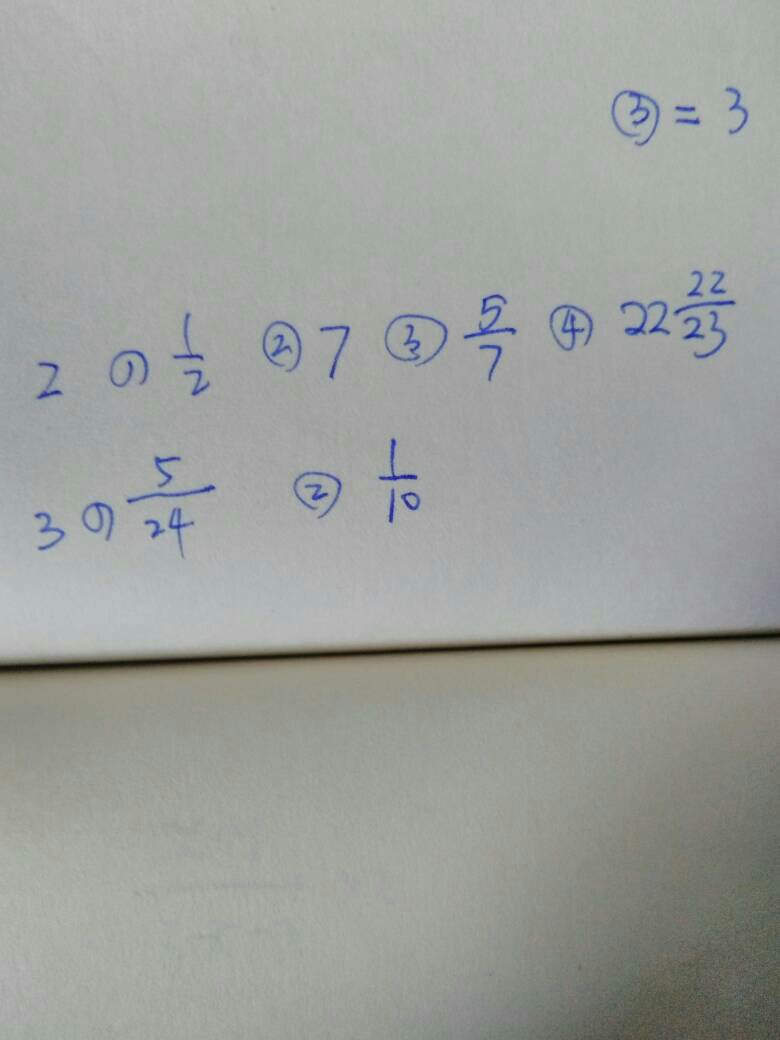 ③ = 3
2 ① 1/2 ② 7 ③ 5/7 ④ 22 22/23
3 ① 5/24 ② 1/10